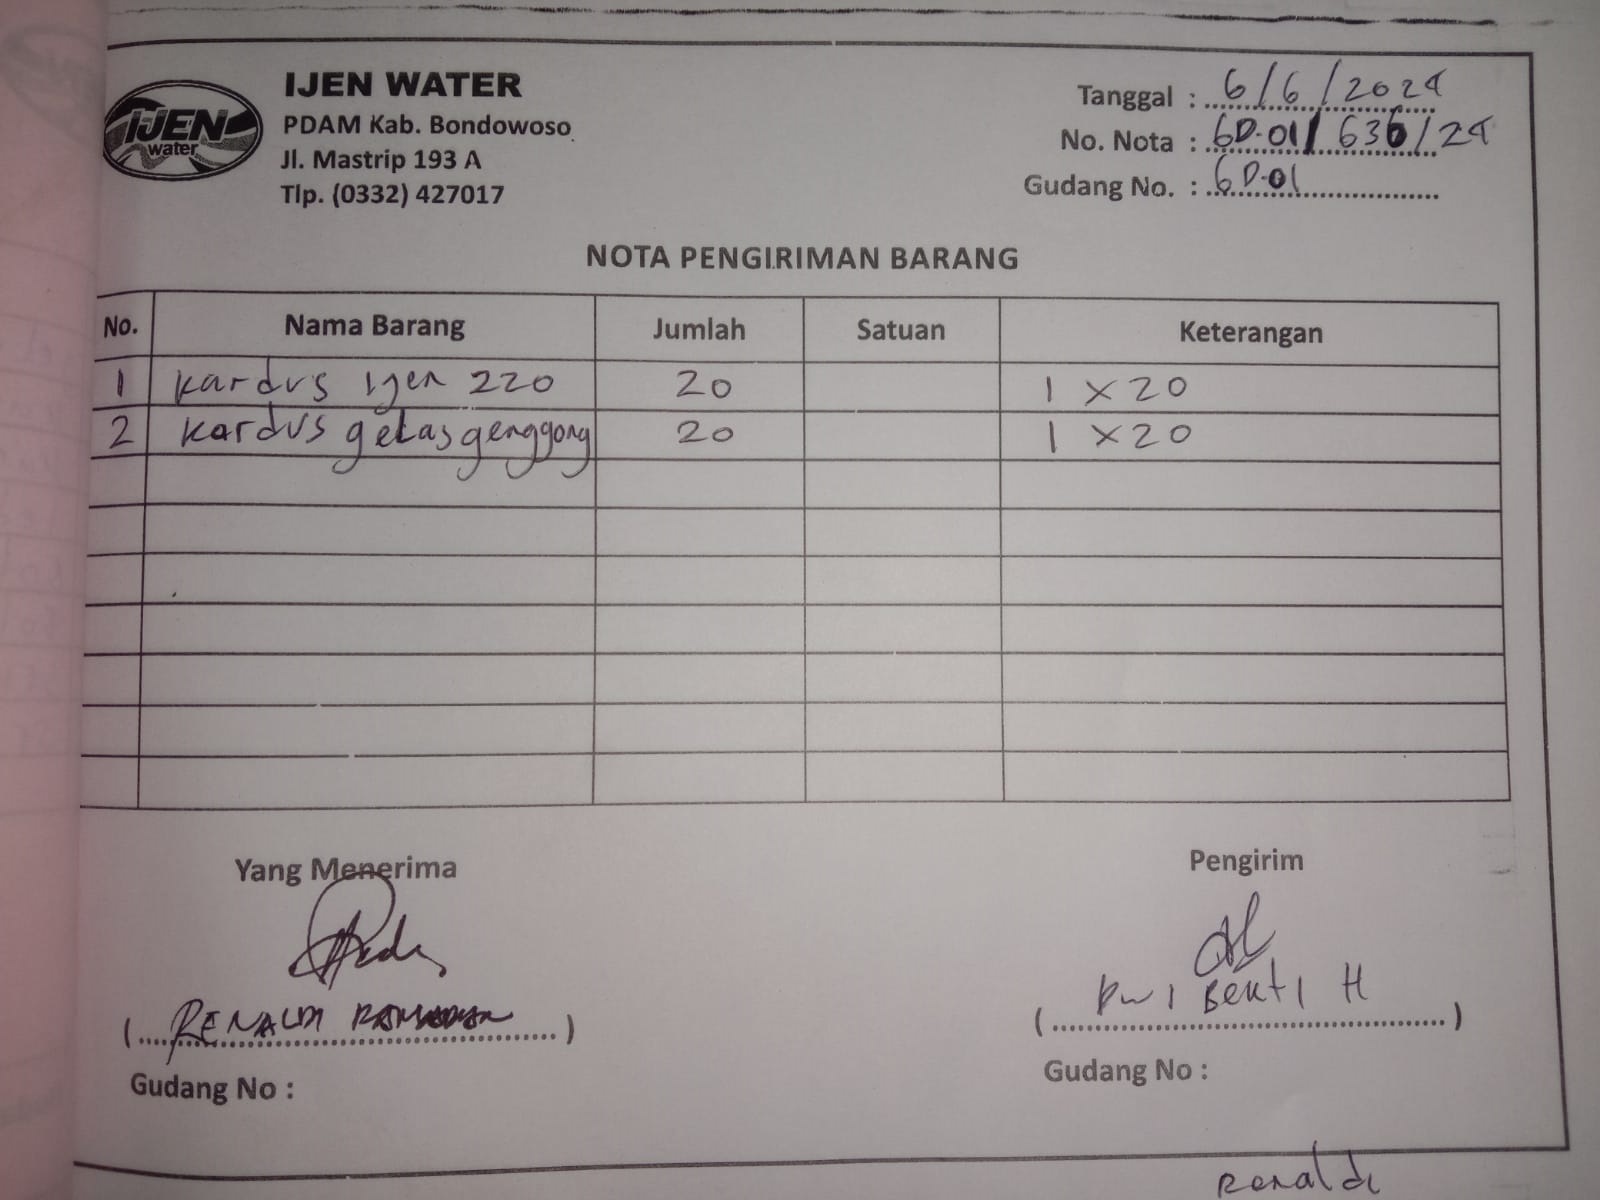 IJEN WATER
PDAM Kab. Bondowoso
Jl. Mastrip 193 A
Tlp. (0332) 427017
IJEN
water
Tanggal : 6/6/2024
No. Nota : GD-01/636/24
Gudang No. : GD-01
NOTA PENGIRIMAN BARANG
No. Nama Barang Jumlah Satuan Keterangan
1 kardus ijen 220 20 1 x 20
2 kardus gelas genggong 20 1 x 20
Yang Menerima
Pengirim
( RENALDI RAMADHAN )
( Dwi Bekti H )
Gudang No :
Gudang No :
Renaldi